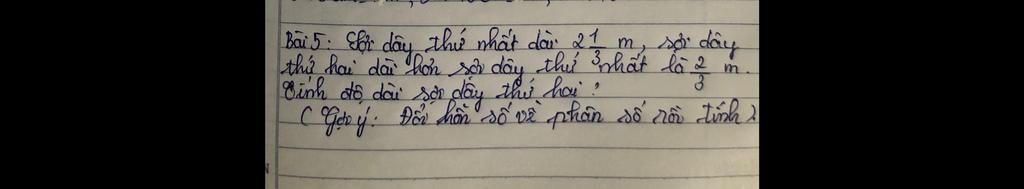 Bài 5: Sợi dây thứ nhất dài 2 1/3 m, sợi dây
thứ hai dài hơn sợi dây thứ nhất là 2/3 m.
Tính độ dài sợi dây thứ hai?
( Gợi ý: Đổi hỗn số về phân số rồi tính )